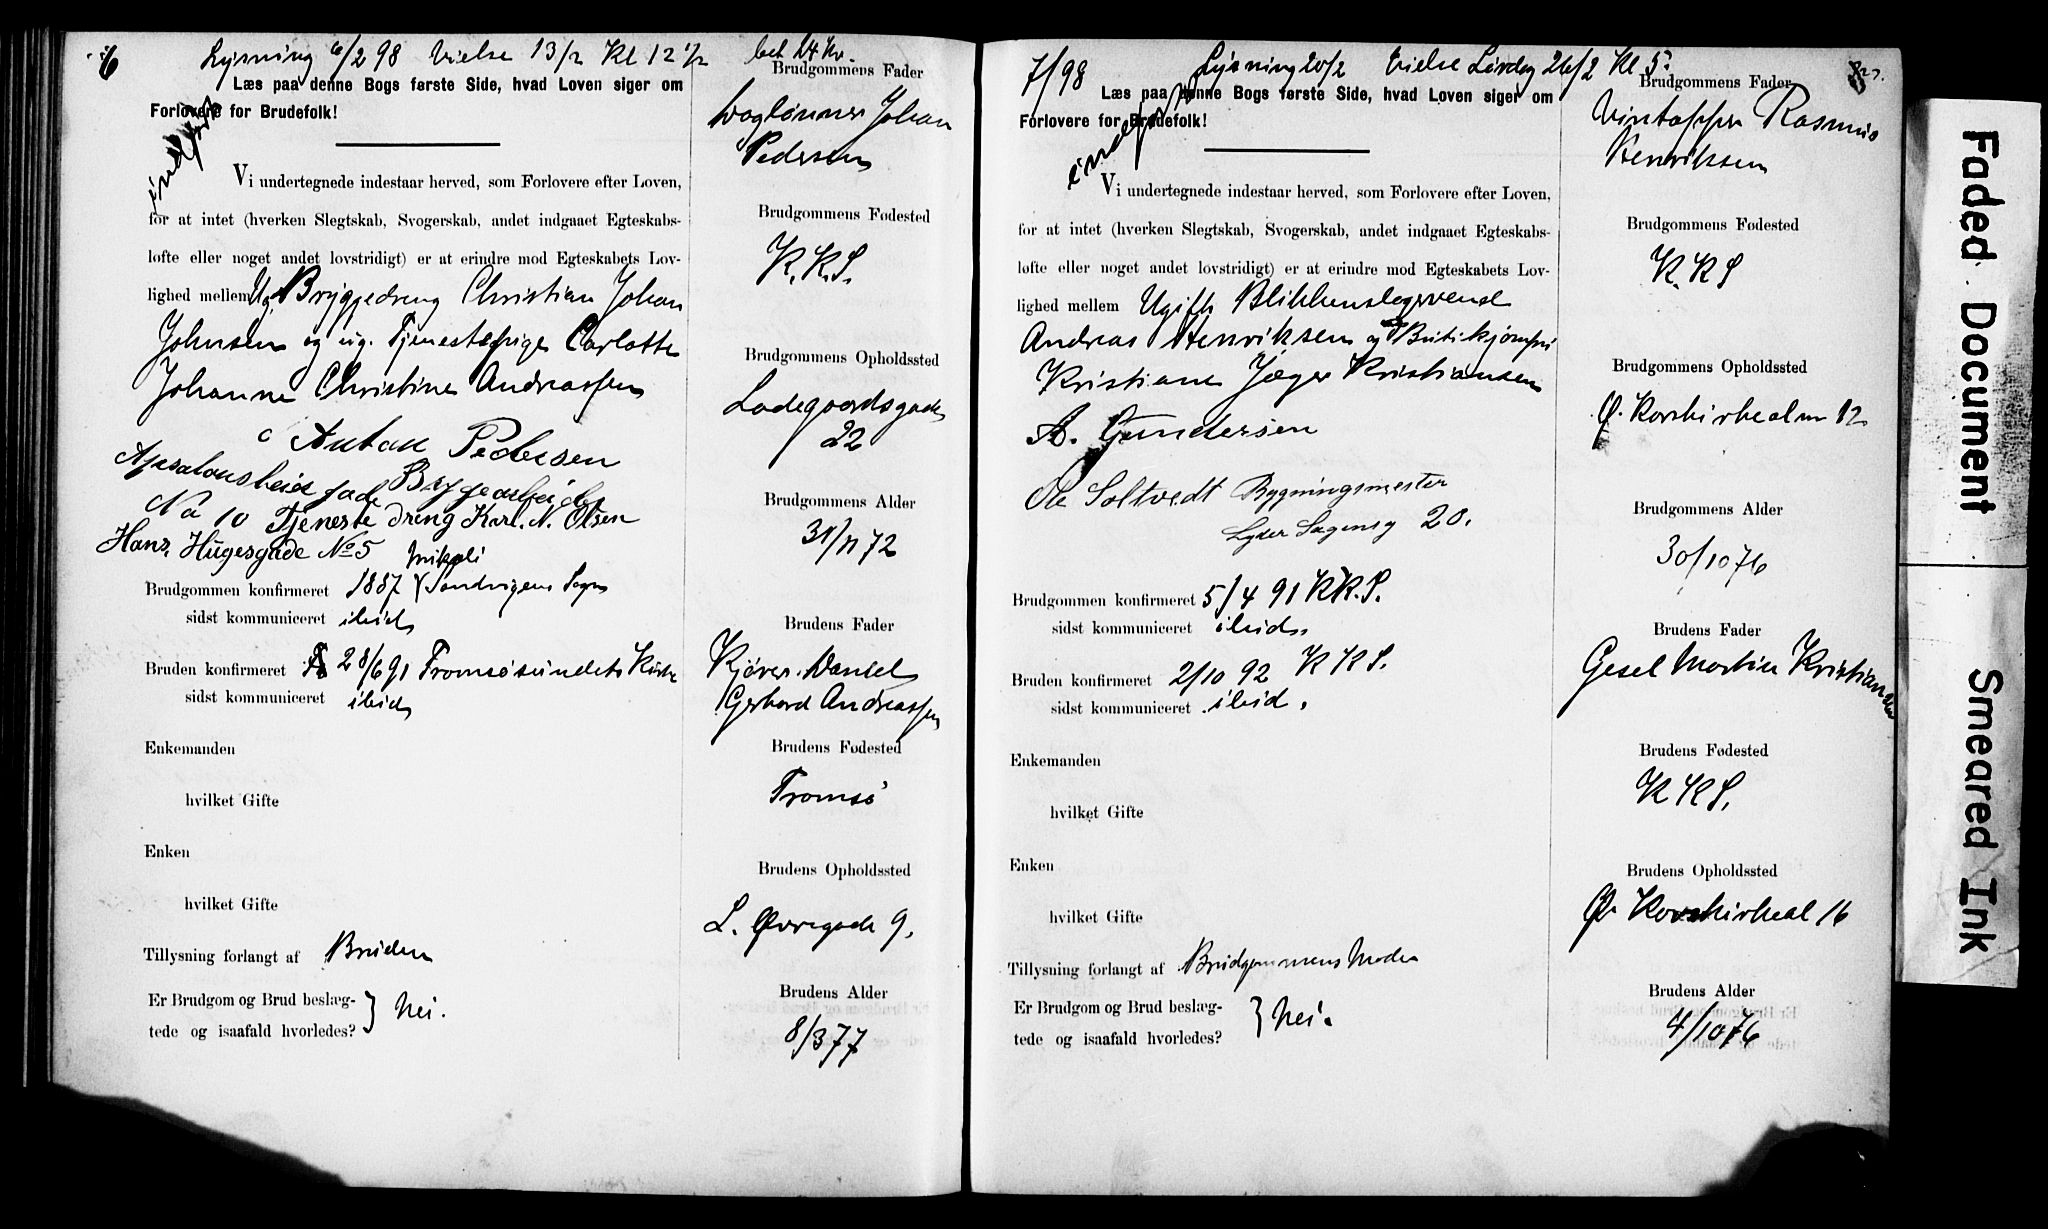 6
Lysning 6/2 98 Vielse 13/2 Kl 12 1/2 bet 14 Kr.
Læs paa denne Bogs første Side, hvad Loven siger om
Forlovere for Brudefolk!
indført
Vi undertegnede indestaar herved, som Forlovere efter Loven,
for at intet (hverken Slegtskab, Svogerskab, andet indgaaet Egteskabs-
løfte eller noget andet lovstridigt) er at erindre mod Egteskabets Lov-
lighed mellem Ug. Bryggedreng Christian Johan
Johnsen og ug. Tjenestepige Carlotte
Johanne Christine Andreassen
Anton Pedersen
Apsalonsbeiergade Bryggearbeider
No 10 Tjeneste dreng Karl. N. Olsen
Hans, Hugesgade No 5
Brudgommen konfirmeret 1887 Mikkeli Sandvigens Sogn
sidst kommuniceret ibid
Bruden konfirmeret 28/6 91 Tromsøsundets Kirke
sidst kommuniceret ibid
Enkemanden
hvilket Gifte
Enken
hvilket Gifte
Tillysning forlangt af Bruden
Er Brudgom og Brud beslæg-
tede og isaafald hvorledes? } Nei.
Brudgommens Fader
Daglønner Johan
Pedersen
Brudgommens Fødested
K. K. S.
Brudgommens Opholdssted
Ladegaardsgade
22
Brudgommens Alder
31/11 72
Brudens Fader
Kjører. Daniel
Gerhard Andreassen
Brudens Fødested
Tromsø
Brudens Opholdssted
L. Øvregade 9.
Brudens Alder
8/3 77
7/98
Lysning 20/2 Vielse Lørdag 26/2 Kl 5.
Læs paa denne Bogs første Side, hvad Loven siger om
Forlovere for Brudefolk!
indført
Vi undertegnede indestaar herved, som Forlovere efter Loven,
for at intet (hverken Slegtskab, Svogerskab, andet indgaaet Egteskabs-
løfte eller noget andet lovstridigt) er at erindre mod Egteskabets Lov-
lighed mellem Ugift Blikkenslagersvend
Andreas Henriksen og Butikjomfru
Kristiane Jæger Kristiansen
A. Gundersen
Ole Soltvedt Bygningsmester
Lyder Sagensg 20.
Brudgommen konfirmeret 5/4 91 K.K.S.
sidst kommuniceret ibid.
Bruden konfirmeret 2/10 92 K K S.
sidst kommuniceret ibid.
Enkemanden
hvilket Gifte
Enken
hvilket Gifte
Tillysning forlangt af Brudgommens Moder
Er Brudgom og Brud beslæg-
tede og isaafald hvorledes? } Nei.
Brudgommens Fader
Vintapper Rasmus
Henriksen
Brudgommens Fødested
K. K S
Brudgommens Opholdssted
Ø. Korskirkealm 12
Brudgommens Alder
30/10 76
Brudens Fader
Gesel Martin Kristiansen
Brudens Fødested
K K S.
Brudens Opholdssted
Ø. Korskirkeal 16
Brudens Alder
4/10 76
Faded Document
Smeared Ink